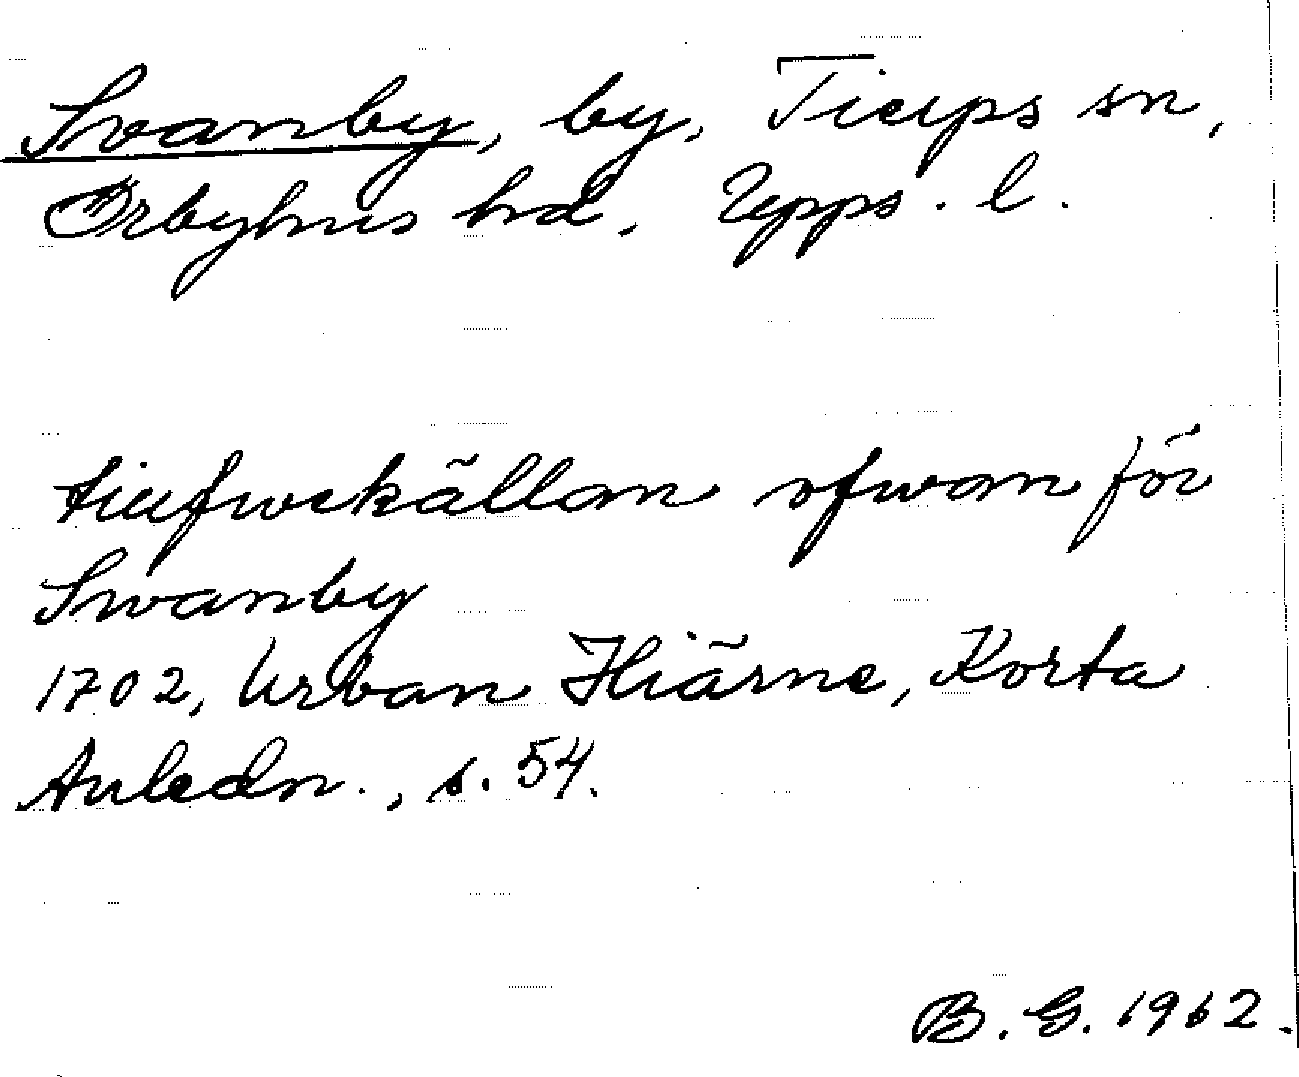 Svanby, by, Tierps sn,
Örbyhus hd. Upps. l.
tiufwekällan ofwan för
Swanby
1702, Urban Hiärne, Korta
Anledn., s. 54.
B. G. 1962.